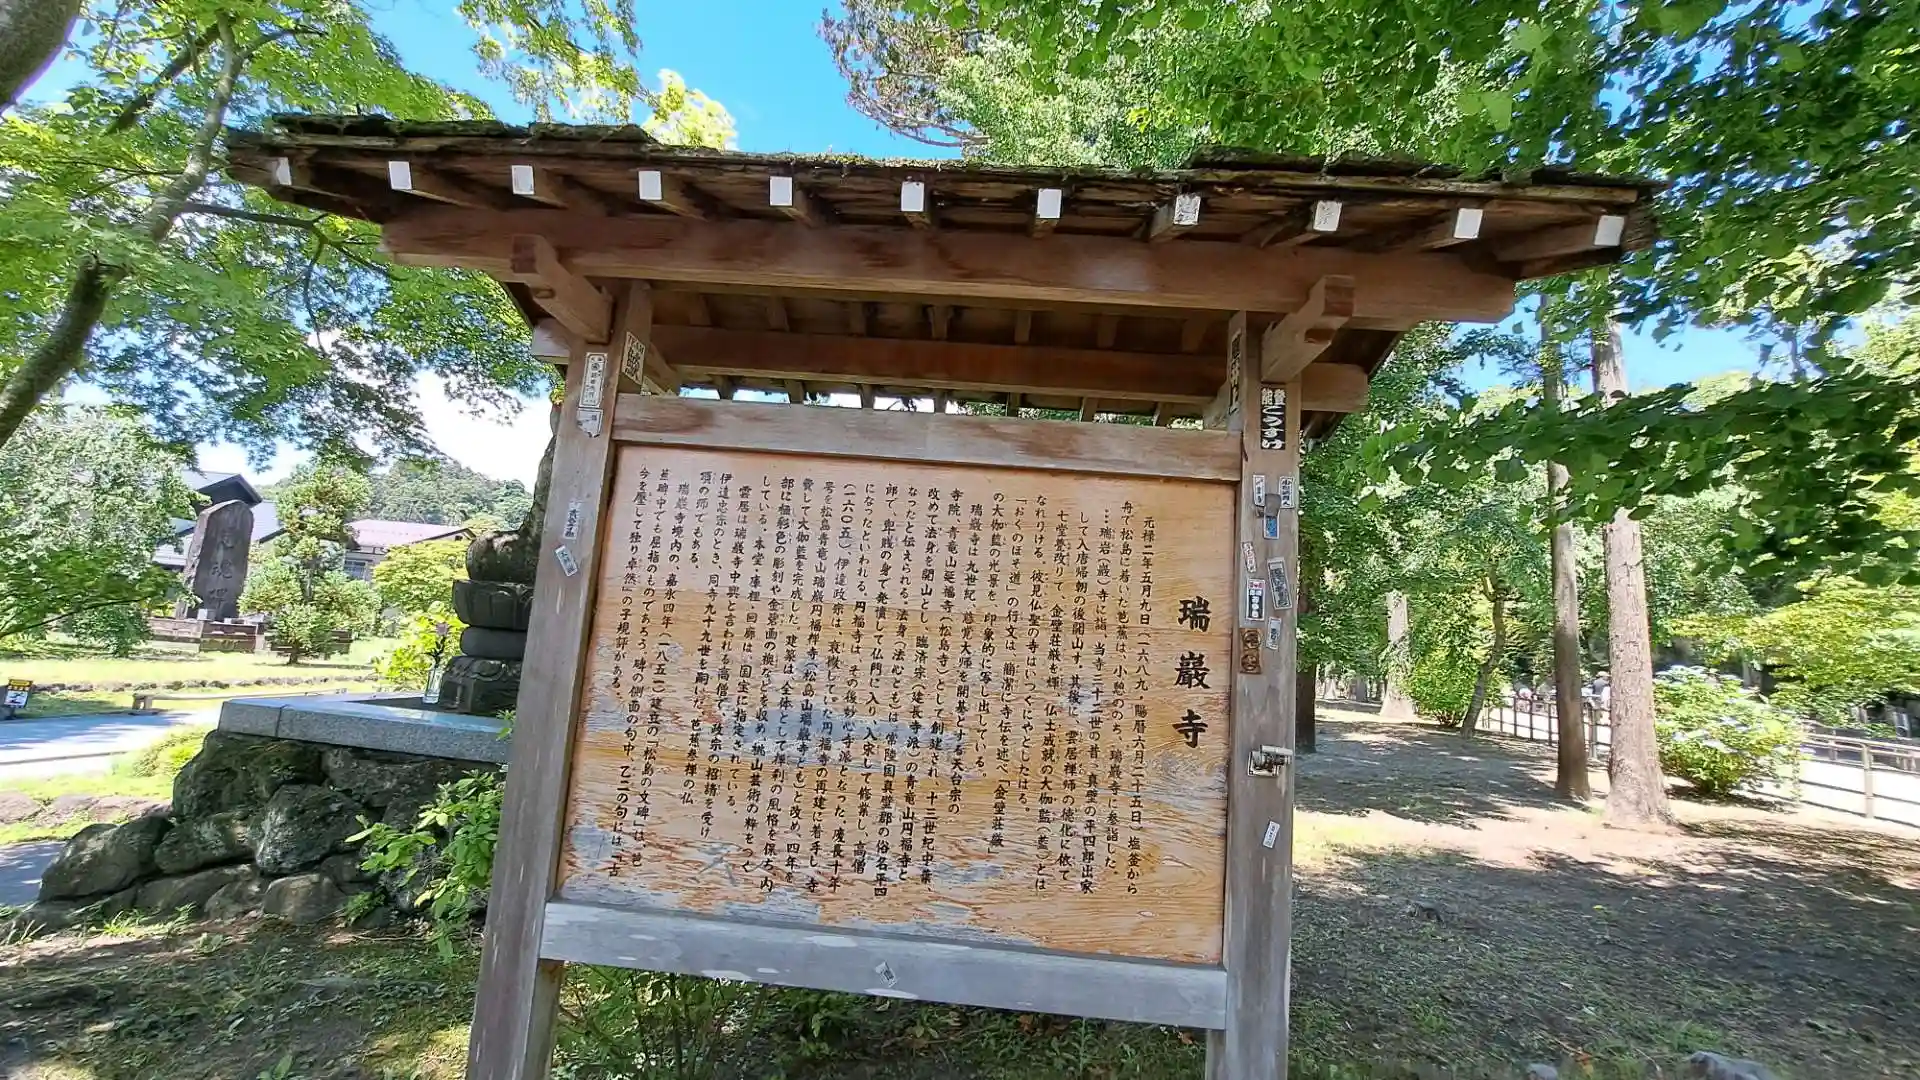 瑞巖寺
元禄二年五月九日(一六八九・陽暦六月二十五日)塩釜から
舟で松島に着いた芭蕉は、小憩ののち、瑞巌寺に参詣した。
瑞岩(巌)寺に詣、当寺三十二世の昔、真壁の平四郎出家
して入唐帰朝の後開山す。其後に、雲居禅師の徳化に依て
七堂甍改りて、金壁荘厳光を輝、仏土成就の大伽藍(藍)とは
なれりける。彼見仏聖の寺はいづくにやとしたはる。
「おくのほそ道」の行文は、簡潔に寺伝を述べ「金壁荘厳」
の大伽藍の光景を、印象的に写し出している。
瑞巌寺は九世紀、慈覚大師を開基とする天台宗の
寺院、青竜山延福寺(松島寺)として創建され、十三世紀中葉、
改めて法身を開山とし、臨済宗(建長寺派)の青竜山円福寺と
なったと伝えられる。法身(法心とも)は常陸国真壁郡の俗名平四
郎で、卑賎の身で発憤して仏門に入り、入宋して修業し、高僧
になったといわれる。円福寺は、その後妙心寺派となった。慶長十年
(一六〇五)、伊達政宗は、衰微していた円福寺の再建に着手し、寺
号を松島青竜山瑞巌円福禅寺(松島山瑞巌寺とも)と改め、四年を
費して大伽藍を完成した。建築は、全体として禅刹の風格を保ち、内
部に極彩色の彫刻や金碧画の襖などを収め、桃山芸術の粋をつく
している。本堂・庫裡・回廊は、国宝に指定されている。
雲居は瑞巌寺中興と言われる高僧で、政宗の招請を受け
伊達忠宗のとき、同寺九十九世を嗣いだ。芭蕉参禅の仏
頂の師でもある。
瑞巌寺境内の、嘉永四年(一八五一)建立の「松島の文碑」は、芭
蕉碑中でも屈指のものであろう。碑の側面の句中、乙二の句には「古
今を壓して独り卓然」の子規評がある。
登能
こうすけ